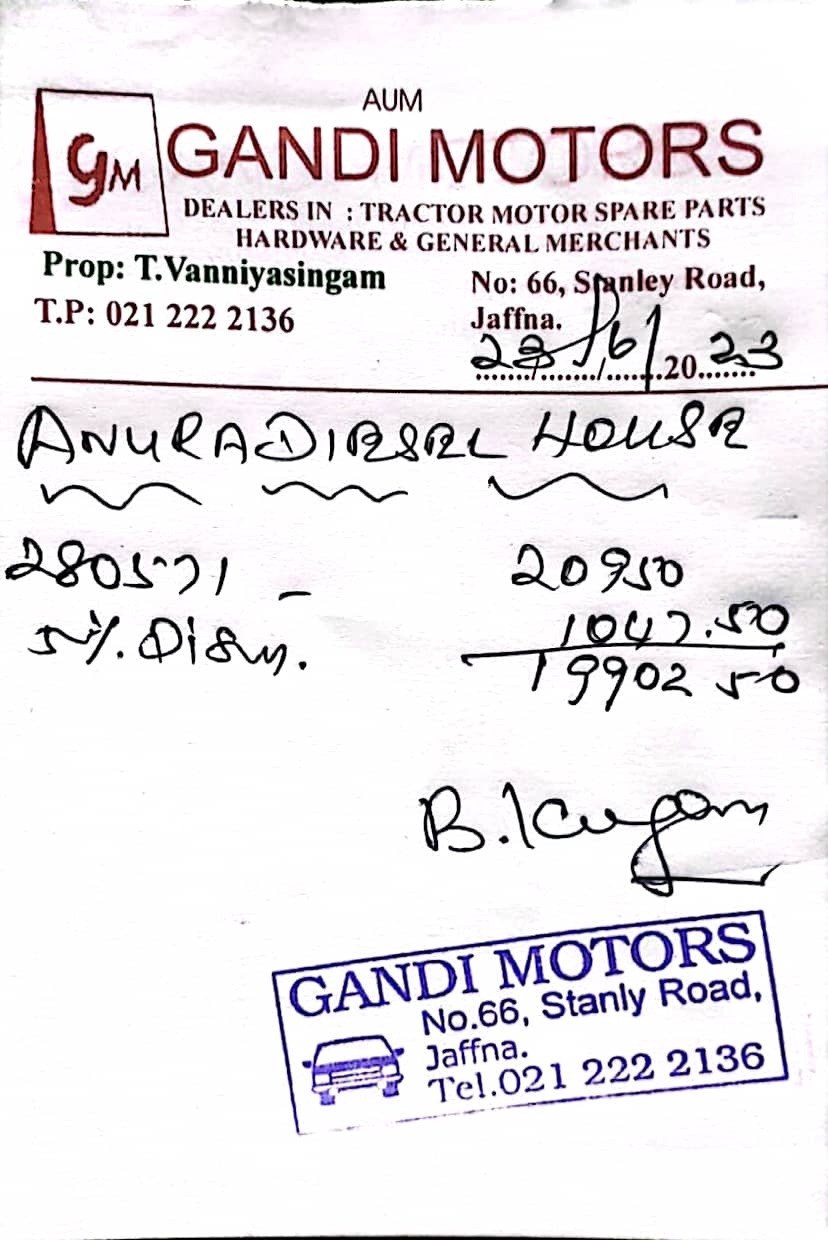 AUM
GM GANDI MOTORS
DEALERS IN : TRACTOR MOTOR SPARE PARTS
HARDWARE & GENERAL MERCHANTS
Prop: T.Vanniyasingam
T.P: 021 222 2136
No: 66, Stanley Road,
Jaffna.
23/6/2023
ANURA DIESEL HOUSE
280571 - 20950
5%. Disn. 1047.50
19902 50
B. Kugan
GANDI MOTORS
No.66, Stanly Road,
Jaffna.
Tel.021 222 2136